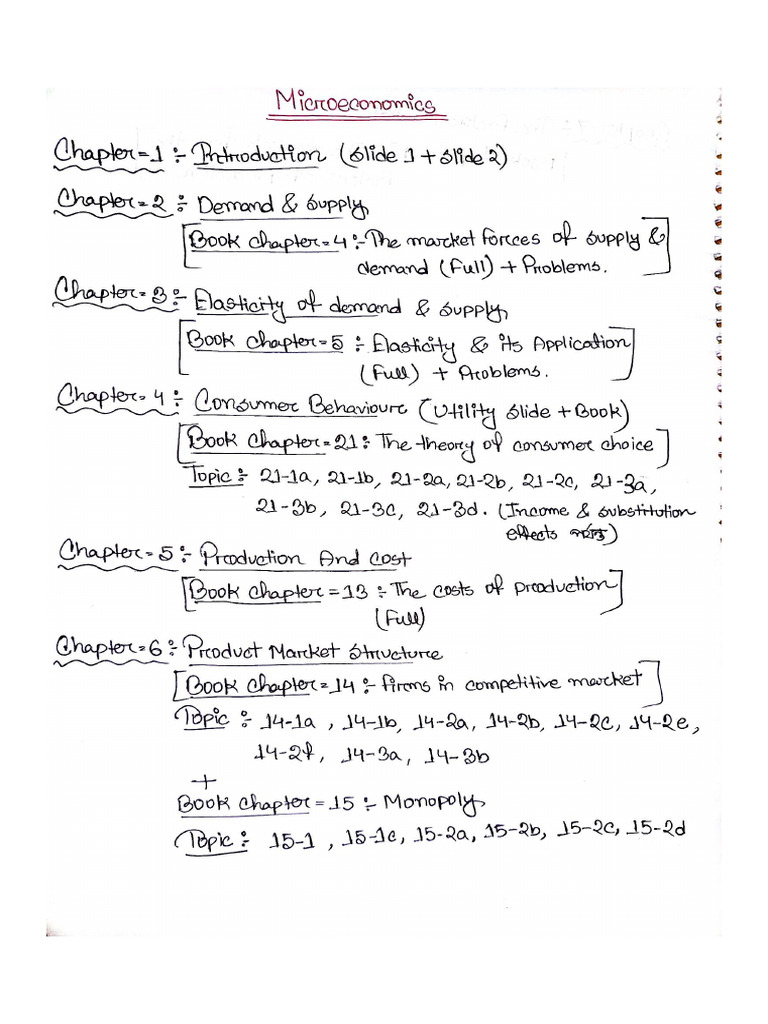 Microeconomics
Chapter=1 ÷ Introduction (Slide 1 + Slide 2)
Chapter=2 ÷ Demand & Supply
[Book Chapter=4 ÷ The market forces of supply &
demand (Full) + Problems.]
Chapter=3 ÷ Elasticity of demand & supply
[Book Chapter=5 ÷ Elasticity & its Application
(Full) + Problems.]
Chapter=4 ÷ Consumer Behaviour (Utility Slide + Book)
[Book Chapter=21 ÷ The theory of consumer choice]
Topic ÷ 21-1a, 21-1b, 21-2a, 21-2b, 21-2c, 21-3a,
21-3b, 21-3c, 21-3d. (Income & substitution
effects)
Chapter=5 ÷ Production And cost
[Book Chapter=13 ÷ The costs of production]
(Full)
Chapter=6 ÷ Product Market Structure
[Book Chapter=14 ÷ firms in competitive market]
Topic ÷ 14-1a, 14-1b, 14-2a, 14-2b, 14-2c, 14-2e,
14-2f, 14-3a, 14-3b
+
Book Chapter=15 ÷ Monopoly
Topic ÷ 15-1, 15-1c, 15-2a, 15-2b, 15-2c, 15-2d